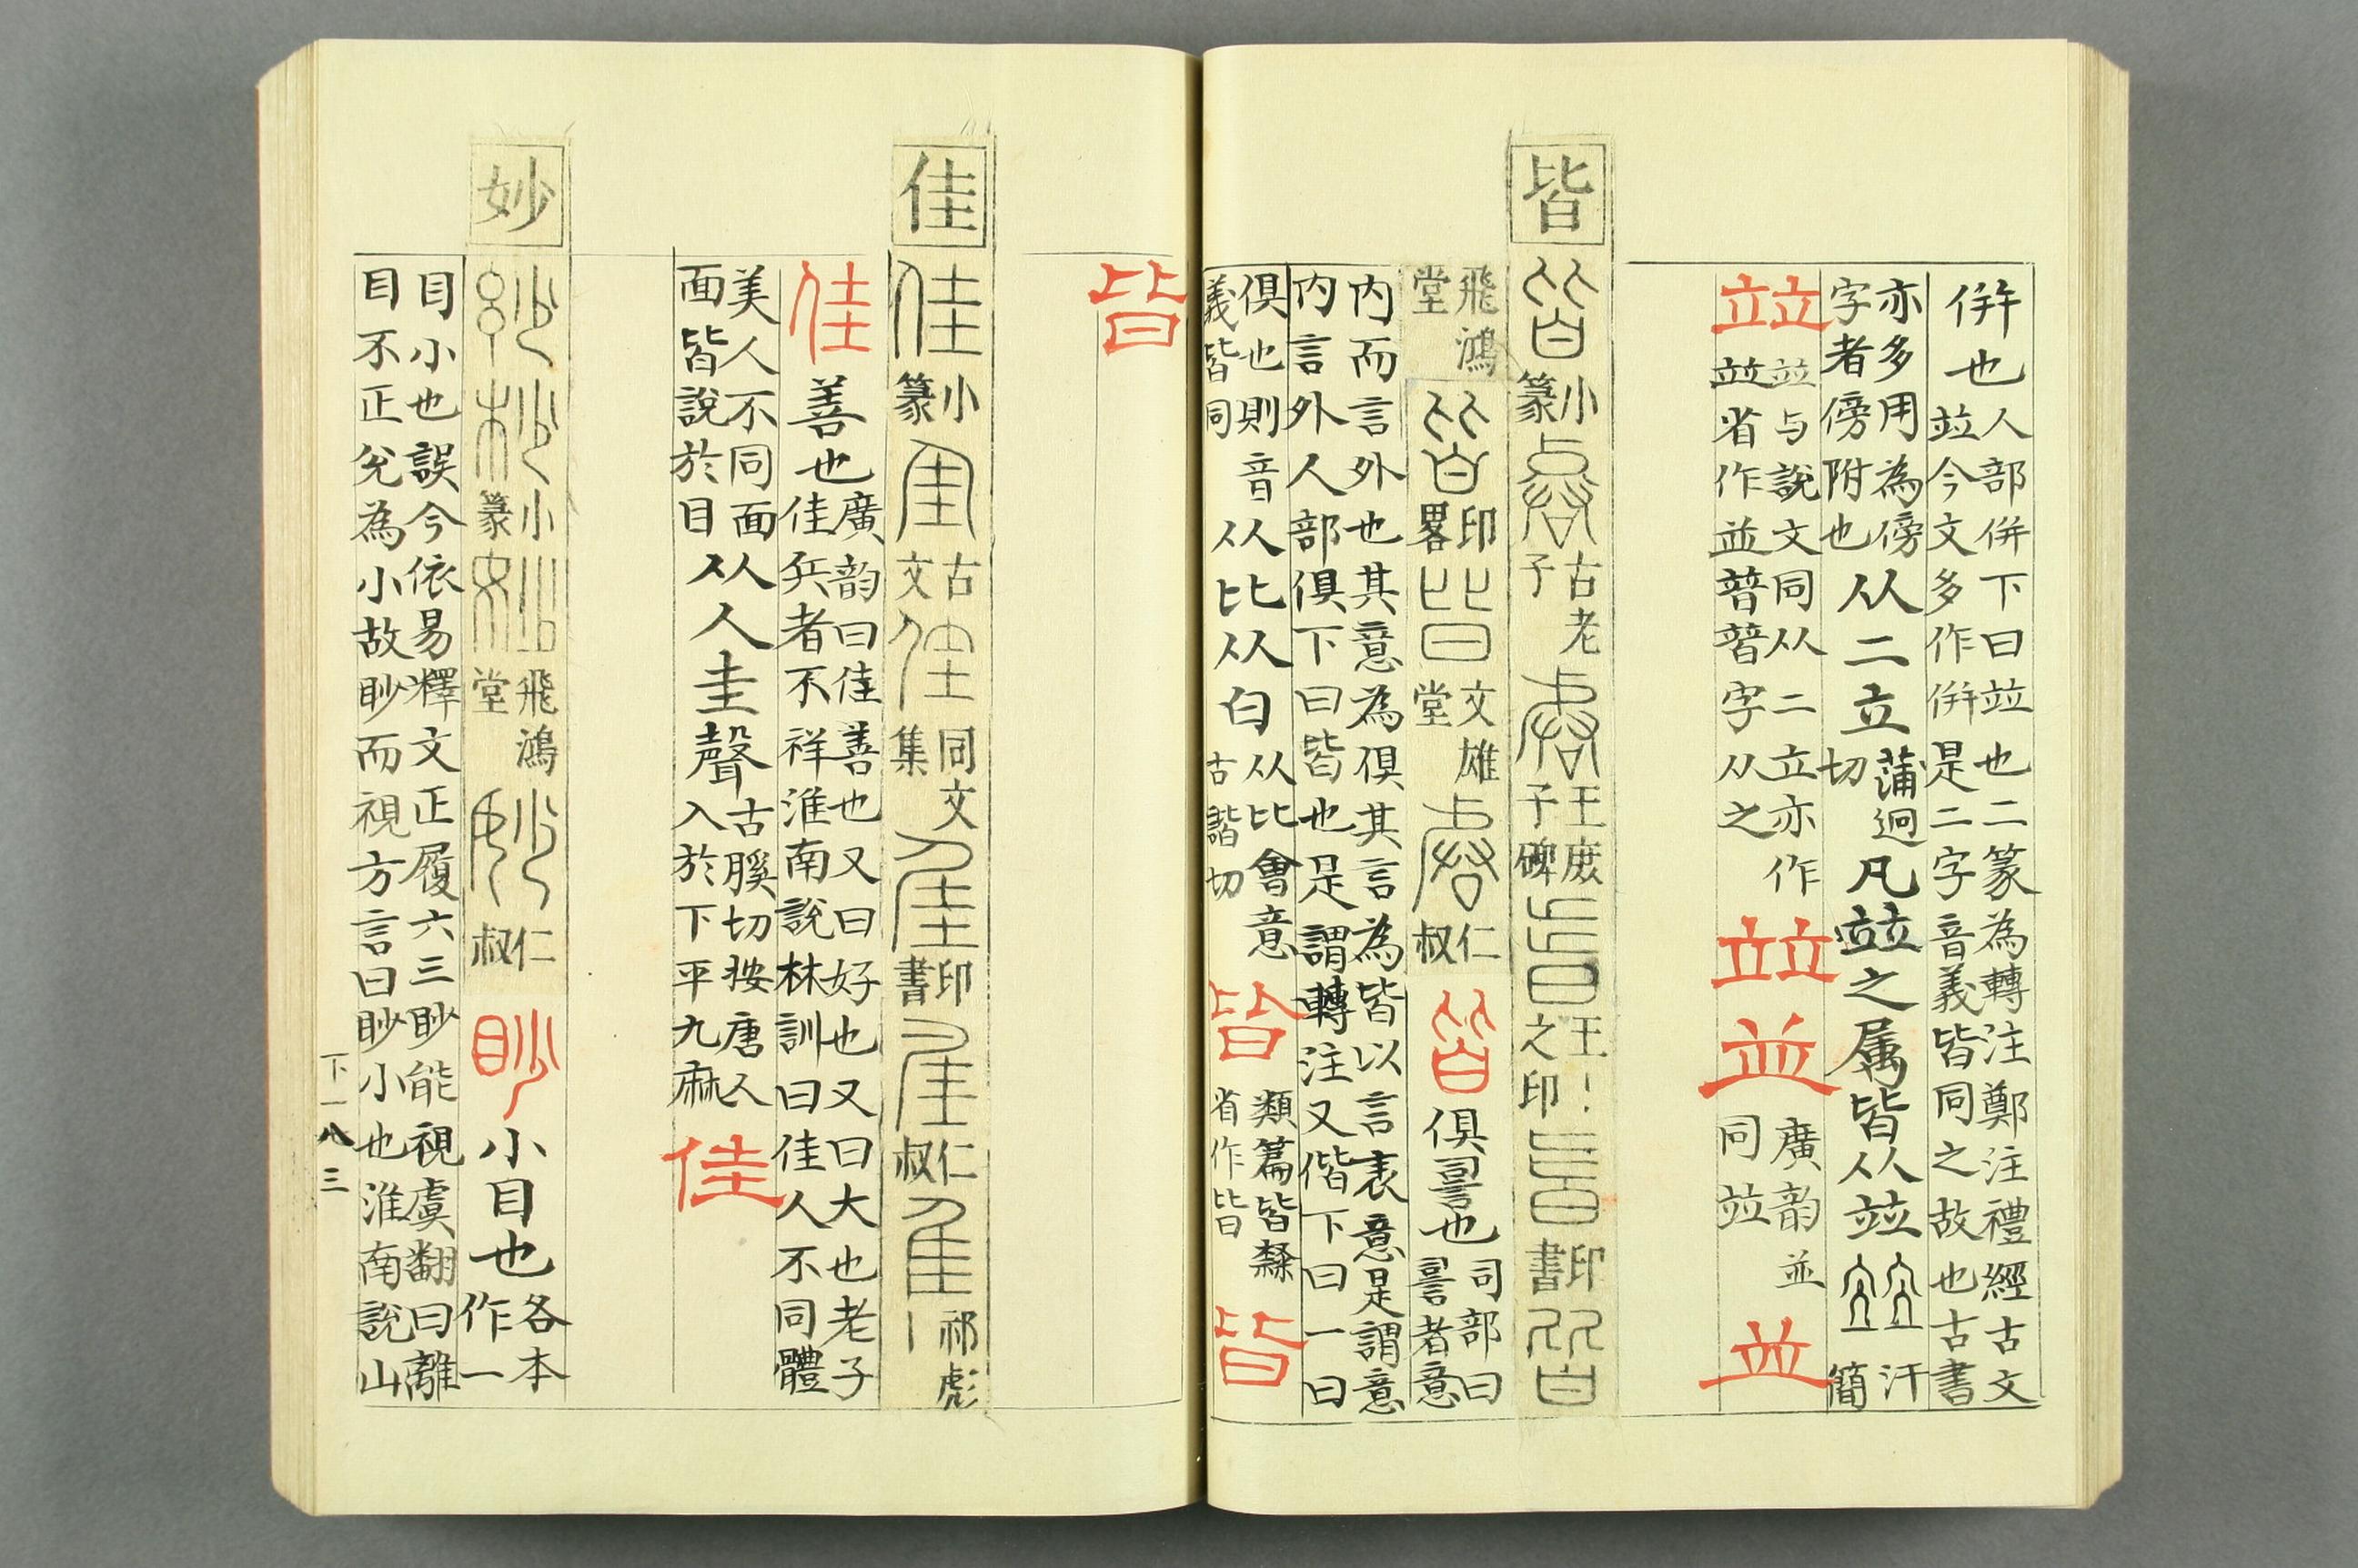 併也人部併下曰竝也二篆為轉注鄭注禮經古文
竝今文多作併是二字音義皆同之故也古書
亦多用為傍
字者傍附也从二立蒲迥切凡竝之属皆从竝
汗簡
竝竝与說文同从二立亦作
竝省作並普暜字从之
竝並廣韵並同竝並
皆
小篆
古老子
王庶子碑
王之印
印書
飛鴻堂
印畧
文雄堂
仁叔
皆俱䛐也司部曰䛐者意
内而言外也其意為俱其言為皆以言表意是謂意
内言外人部俱下曰皆也是謂轉注又偕下曰一曰
俱也則音
義皆同从比从白从比會意
古諧切皆類篇皆隸
省作皆皆
皆
佳
佳
小篆
古文
同文集
印書
仁叔
祁彪
佳善也廣韵曰佳善也又曰好也又曰大也老子
佳兵者不祥淮南說林訓曰佳人不同體
美人不同面
面皆說於目从人圭聲古膎切按唐人
入於下平九麻佳
妙
小篆
飛鴻堂
仁叔
眇小目也各本作一
目小也誤今依易釋文正履六三眇能視虞翻曰離
目不正兌為小故眇而視方言曰眇小也淮南說山
下一八三